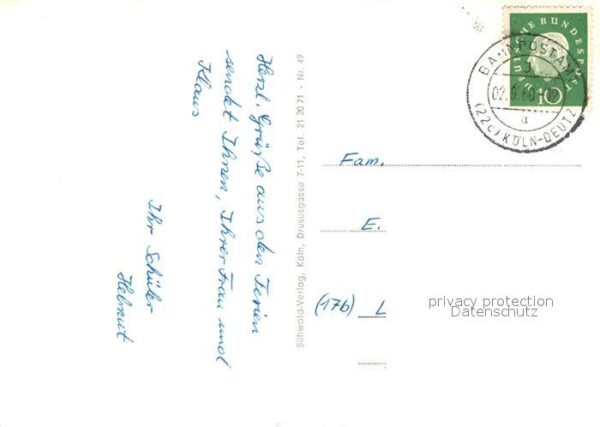 Herzl. Grüße aus den Ferien
sendet Ihnen, Ihrer Frau und
Klaus
Ihr Schüler
Helmut
Stüwold-Verlag, Köln, Drususgasse 7-11, Tel. 21 20 71 - Nr. 49
DEUTSCHE BUNDESPOST
10
BAHNPOSTAMT
02.9.60
a
(22c) KÖLN-DEUTZ
Fam.
E.
(17b) L
privacy protection
Datenschutz